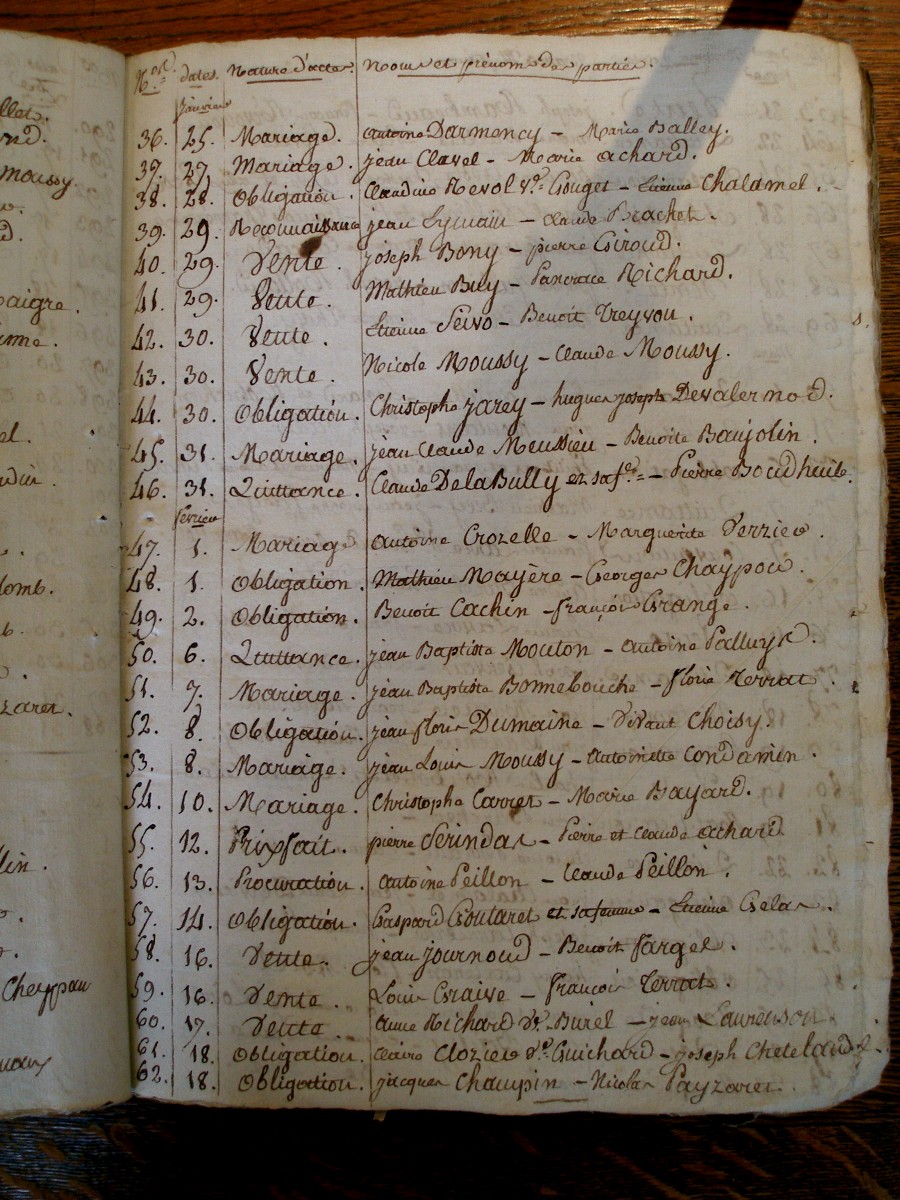 llet.
and.
Moussy.
paigre.
lomb.
Cheyppau
Nos. dates. Nature d'actes. Noms et prénoms des parties.
janvier
36. 25. Mariage. antoine Darmency - Marie Balley.
37. 27. Mariage. jean Clavel - Marie achard.
38. 28. Obligation. Claudine Revol Ve. Gouget - Etienne Chalamel.
39. 29. Reconnaissance jean Lymain - Claude Brachet.
40. 29. Vente. joseph Bony - pierre Giroud.
41. 29. Vente. Mathieu Buy - Pancrace Richard.
42. 30. Vente. Etienne Seivo - Benoit Treyvou.
43. 30. Vente. Nicole Moussy - Claude Moussy.
44. 30. Obligation. Christophe jarey - hugues joseph Devalermod.
45. 31. Mariage. jean Claude Meussieu - Benoite Baujolin.
46. 31. Quittance. Claude DelaBully et sa fe. - Pierre Boudhuile
février
47. 1. Mariage antoine Crozelle - Marguerite Verzieo
48. 1. Obligation. Mathieu Mayère - Georges Chaypou.
49. 2. Obligation. Benoit Cachin - françois Grange.
50. 6. Quittance. jean Baptiste Mouton - antoine Palluys.
51. 7. Mariage. jean Baptiste Bonnebouche - florie Terrat.
52. 8. Obligation. jean floris Dumaine - Vivant Choisy.
53. 8. Mariage. jean Louis Moussy - antoinette Condamin.
54. 10. Mariage. Christophe Carret - Marie Bayard.
55. 12. Prixfait. pierre Serindas - Pierre et Claude achard
56. 13. Procuration. antoine Peillon - Claude Peillon.
57. 14. Obligation. Gaspard Goutaret et sa femme - Etienne Gelas.
58. 16. Vente. jean journoud - Benoit farget.
59. 16. Vente. Louis Graive - françois Terrat.
60. 17. Vente anne Richard Ve. Burel - jean Laurenson
61. 18. Obligation. Claire Clozieo Ve. Guichard - joseph Chetelaud
62. 18. Obligation. jacques Chaupin - Nicolas Payzaret.